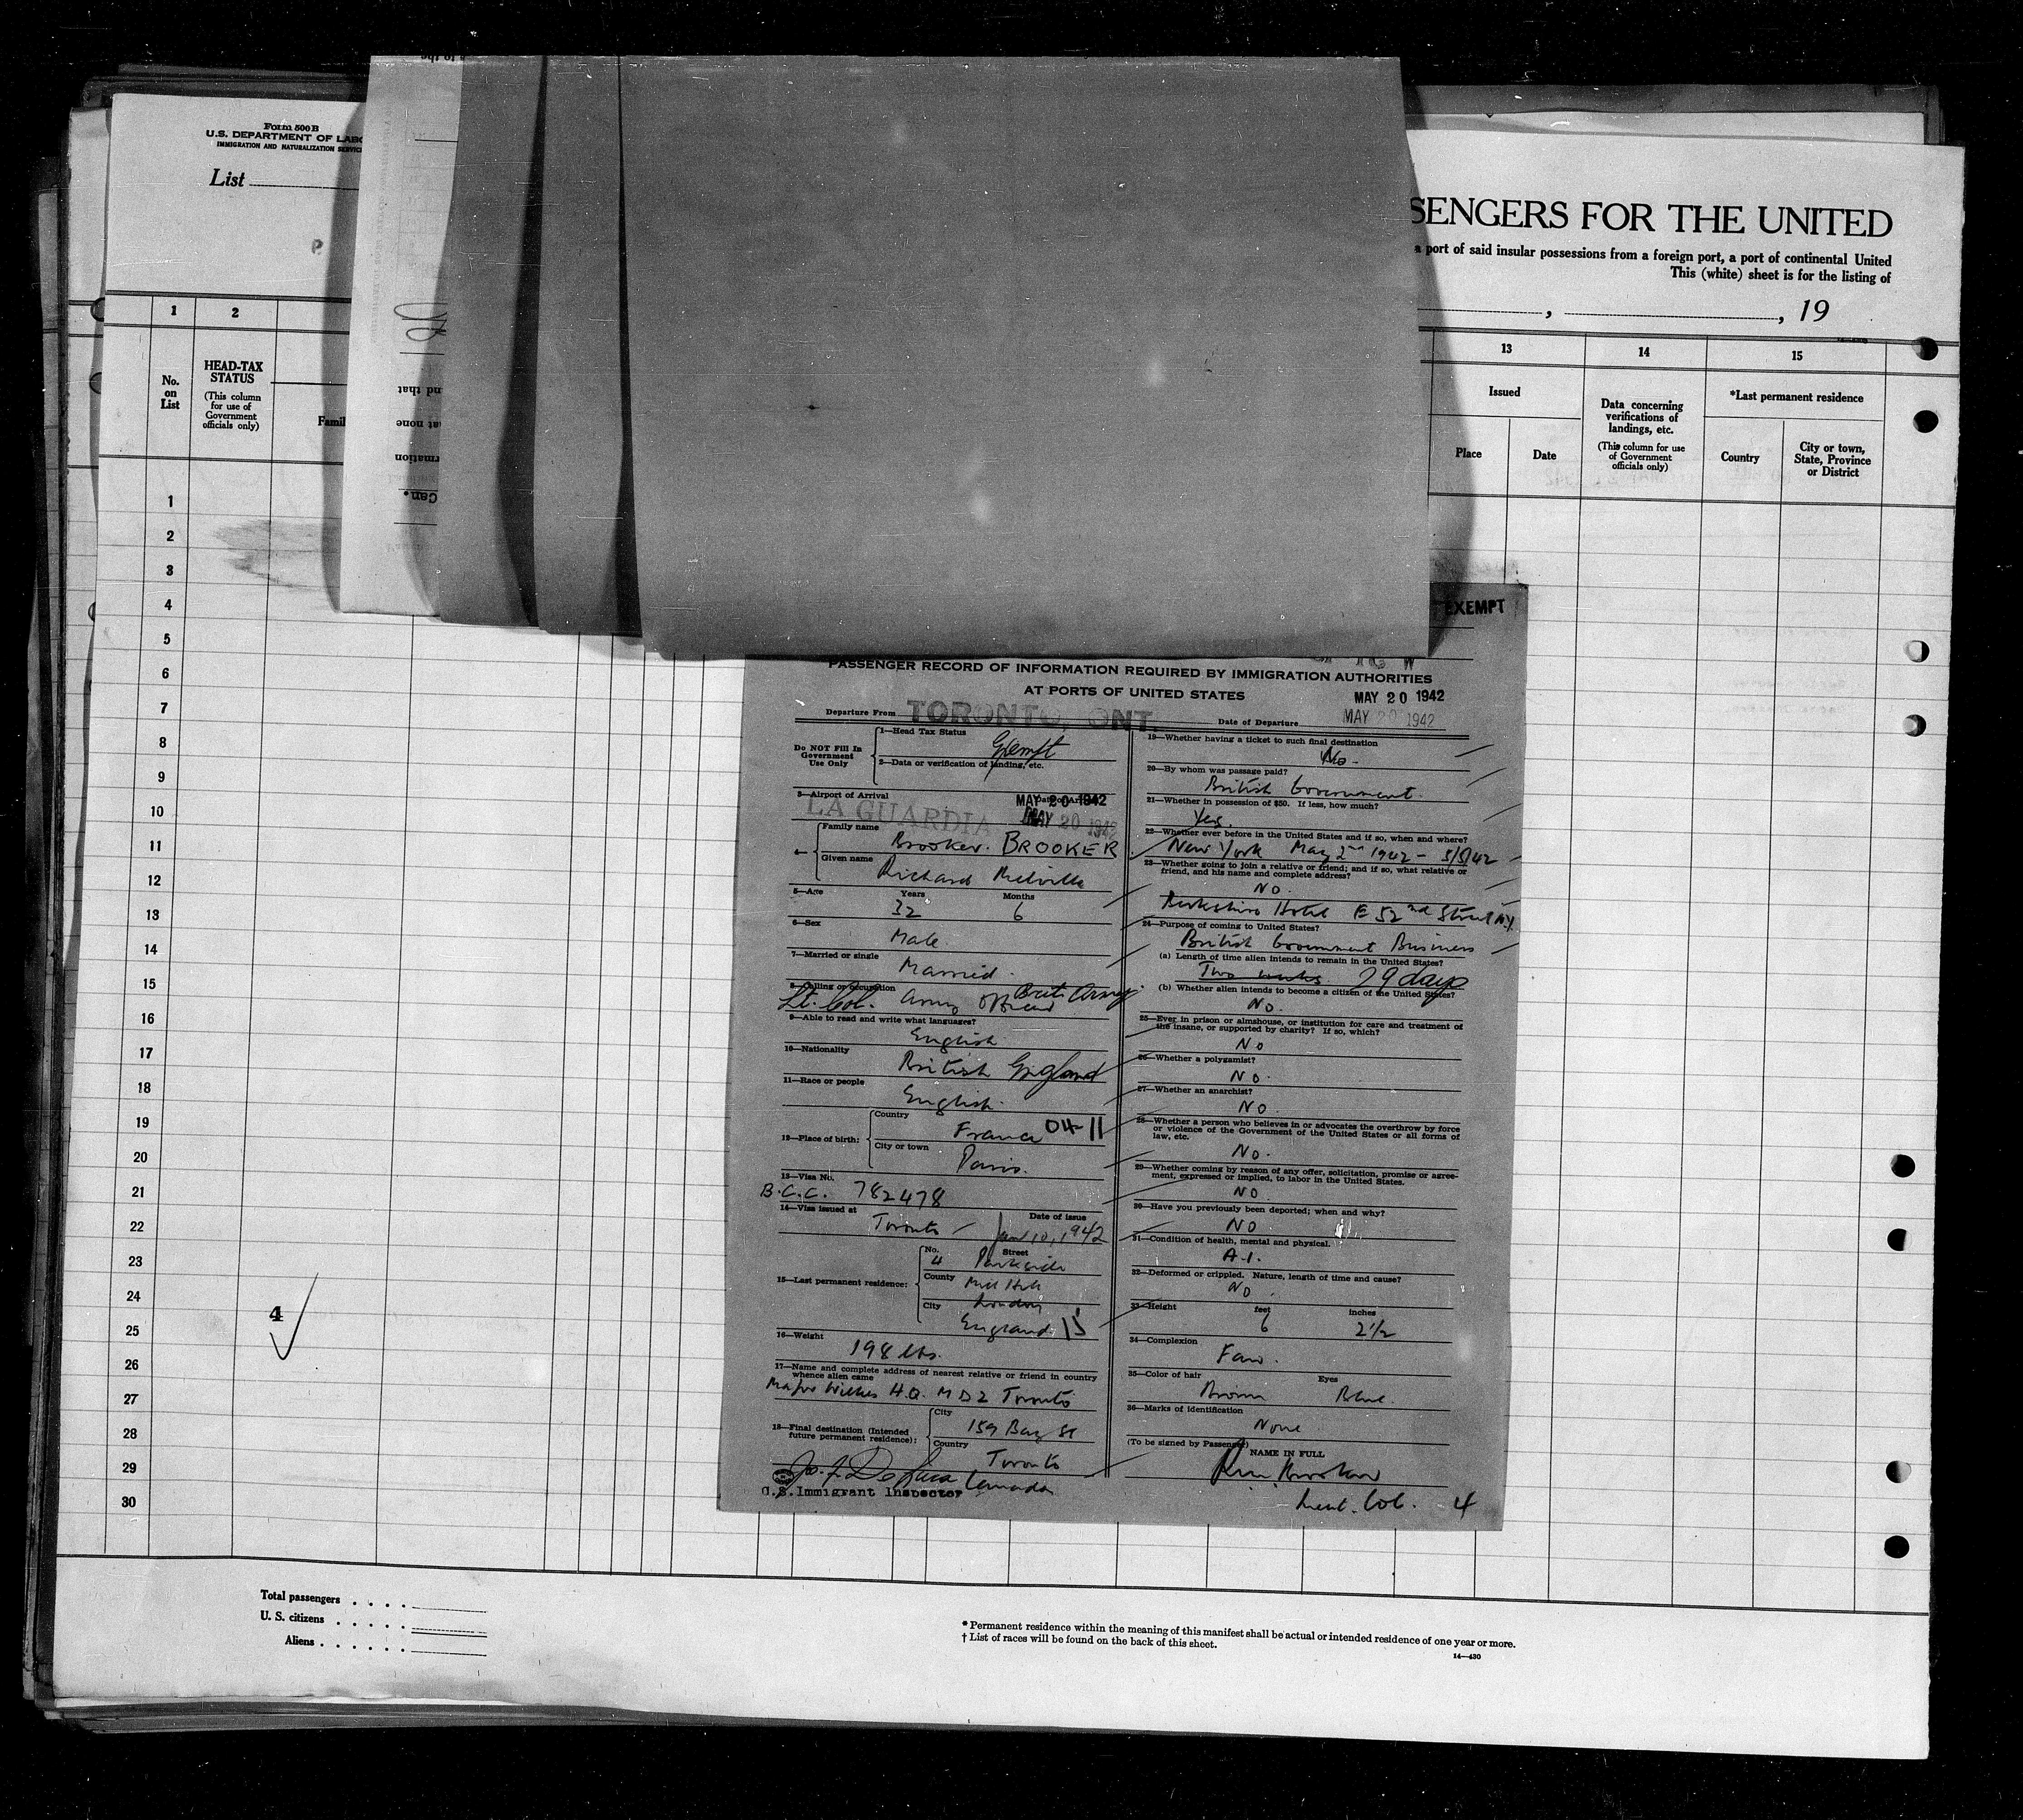 Form 500B
U.S. DEPARTMENT OF LABO
IMMIGRATION AND NATURALIZATION SERVIC
List
SENGERS FOR THE UNITED
a port of said insular possessions from a foreign port, a port of continental United
This (white) sheet is for the listing of
, , 19
1 2 13 14 15
No. on List
HEAD-TAX STATUS
(This column for use of Government officials only)
Famil
Issued
Place Date
Data concerning verifications of landings, etc.
(This column for use of Government officials only)
*Last permanent residence
Country
City or town, State, Province or District
1
2
3
4
5
6
7
8
9
10
11
12
13
14
15
16
17
18
19
20
21
22
23
24
25
26
27
28
29
30
4
nd that
at none
rmation
Can.
EXEMPT
PASSENGER RECORD OF INFORMATION REQUIRED BY IMMIGRATION AUTHORITIES
AT PORTS OF UNITED STATES
MAY 20 1942
Departure From TORONTO, ONT.
Date of Departure MAY 20 1942
Do NOT Fill In Government Use Only
1—Head Tax Status
Exempt
2—Data or verification of landing, etc.
3—Airport of Arrival
LA GUARDIA
Date of Arrival
MAY 20 1942
MAY 20 1942
4— Family name
Brooker. BROOKER
Given name
Richard Melville
5—Age Years Months
32 6
6—Sex
Male
7—Married or single
Married.
8—Calling or occupation
Lt. Col. Army Officer Brit. Army.
9—Able to read and write what languages?
English
10—Nationality
British England
11—Race or people
English.
12—Place of birth:
Country
France 04-11
City or town
Paris.
13—Visa No.
B.C.C. 782478
14—Visa issued at Date of issue
Toronto – Jan 10, 1942
15—Last permanent residence:
No. Street
4 Parkside
County
Mill Hill
City
London
England. 15
16—Weight
198 lbs.
17—Name and complete address of nearest relative or friend in country
whence alien came
Major Wilkes H.Q. M D 2 Toronto
18—Final destination (Intended
future permanent residence):
City
159 Bay St
Country
Toronto
Canada
U.S. Immigrant Inspector
19—Whether having a ticket to such final destination
No –
20—By whom was passage paid?
British Government.
21—Whether in possession of $50. If less, how much?
Yes.
22—Whether ever before in the United States and if so, when and where?
New York May 2nd 1942 – 5/5/42
23—Whether going to join a relative or friend; and if so, what relative or
friend, and his name and complete address?
NO.
Berkshire Hotel E 52nd Street N.Y.
24—Purpose of coming to United States?
British Government Business
(a) Length of time alien intends to remain in the United States?
Two weeks. 29 days
(b) Whether alien intends to become a citizen of the United States?
No.
25—Ever in prison or almshouse, or institution for care and treatment of
the insane, or supported by charity? If so, which?
No
26—Whether a polygamist?
No.
27—Whether an anarchist?
NO.
28—Whether a person who believes in or advocates the overthrow by force
or violence of the Government of the United States or all forms of
law, etc.
No.
29—Whether coming by reason of any offer, solicitation, promise or agree-
ment, expressed or implied, to labor in the United States.
NO
30—Have you previously been deported; when and why?
NO
31—Condition of health, mental and physical.
A-1.
32—Deformed or crippled. Nature, length of time and cause?
No.
33—Height feet inches
6 2 1/2
34—Complexion
Fair.
35—Color of hair Eyes
Brown Blue.
36—Marks of identification
None
(To be signed by Passenger)
NAME IN FULL
Lieut. Col. 4
Total passengers . . . .
U. S. citizens . . . . .
Aliens . . . . . .
* Permanent residence within the meaning of this manifest shall be actual or intended residence of one year or more.
† List of races will be found on the back of this sheet.
14—430